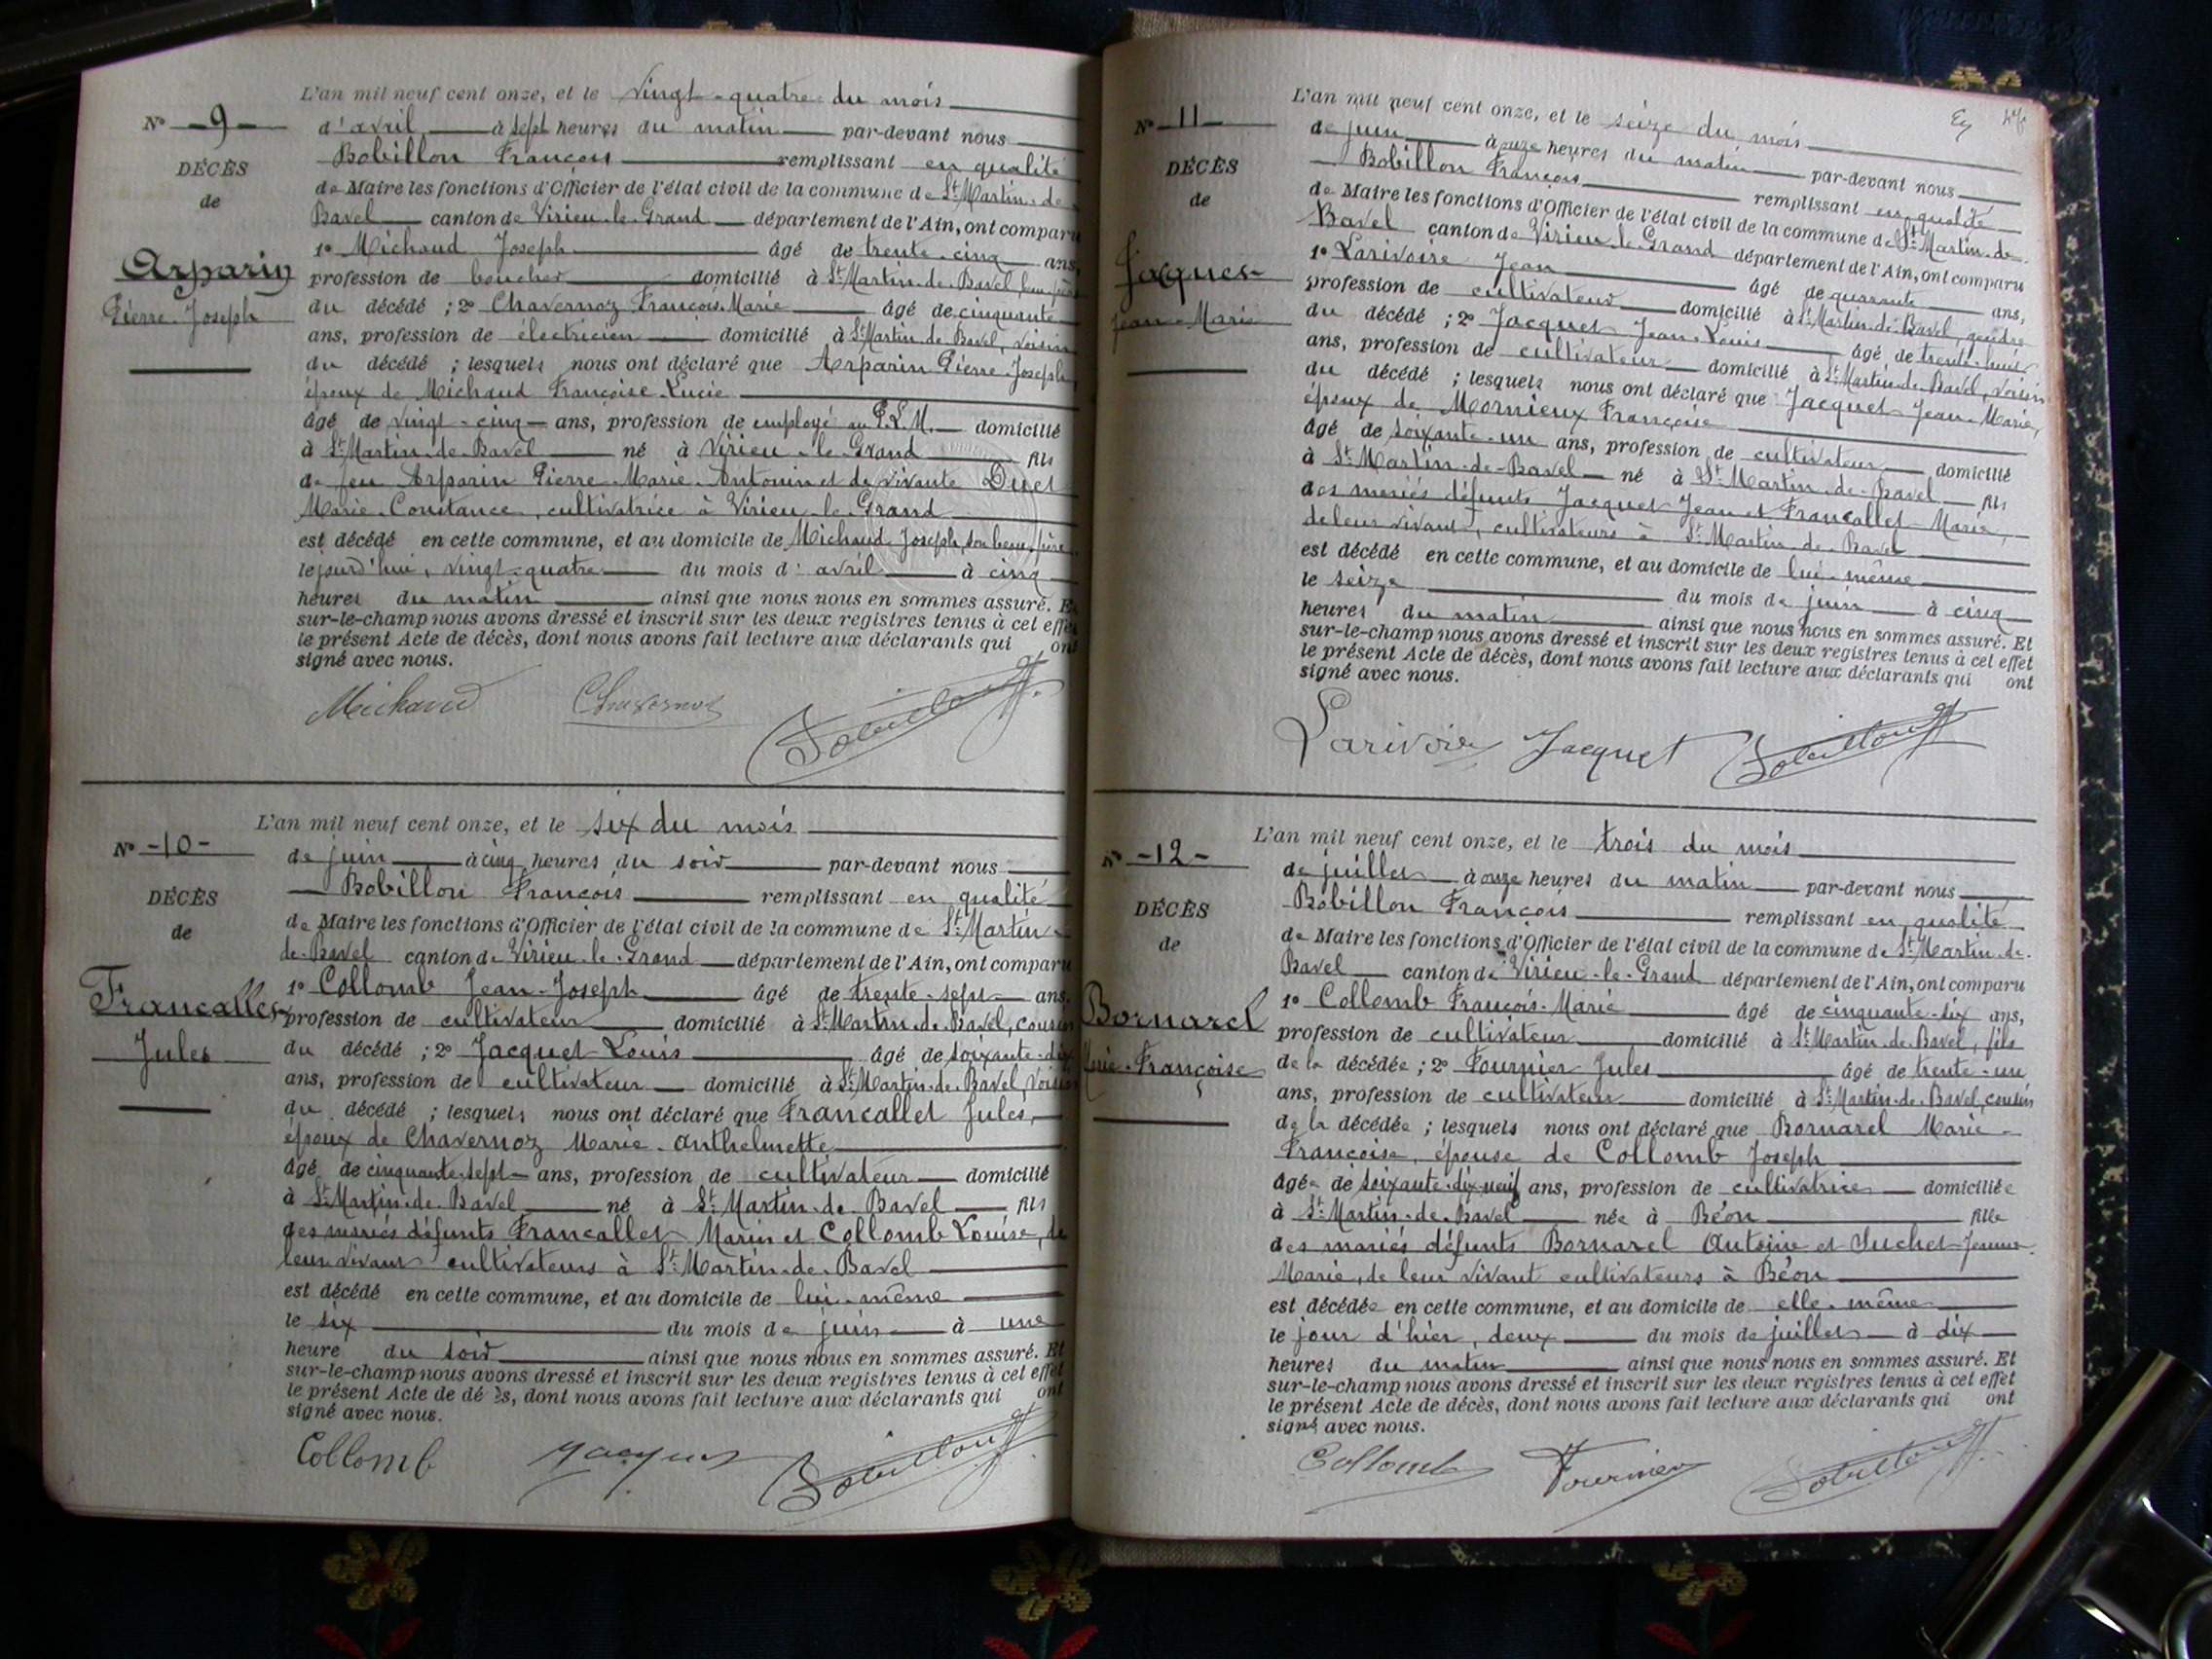 L'an mil neuf cent onze, et le vingt-quatre du mois
N° -9-
d'avril à sept heures du matin par-devant nous
Bobillon François remplissant en qualité
DÉCÈS
de Maire les fonctions d'Officier de l'état civil de la commune de St Martin-de
de
Bavel canton de Virieu-le-Grand département de l'Ain, ont comparu
1° Michaud Joseph âgé de trente-cinq ans,
Arparin
profession de boucher domicilié à St Martin-de-Bavel,
Pierre-Joseph
du décédé ; 2° Chavernoz François-Marie âgé de cinquante
ans, profession de électricien domicilié à St Martin-de-Bavel, voisin
du décédé ; lesquels nous ont déclaré que Arparin Pierre-Joseph,
époux de Michaud Françoise-Lucie
âgé de vingt-cinq ans, profession de employé au P.L.M. domicilié
à St Martin-de-Bavel né à Virieu-le-Grand fils
de feu Arparin Pierre-Marie-Antonin et de vivante Ducl
Marie-Constance, cultivatrice à Virieu-le-Grand
est décédé en cette commune, et au domicile de Michaud Joseph, son beau-frère
le jourd'hui, vingt-quatre du mois d'avril à cinq
heures du matin ainsi que nous nous en sommes assuré. Et
sur-le-champ nous avons dressé et inscrit sur les deux registres tenus à cet effet
le présent Acte de décès, dont nous avons fait lecture aux déclarants qui ont
signé avec nous.
Michaud Chavernoz Bobillon
L'an mil neuf cent onze, et le six du mois
N° -10-
de juin à cinq heures du soir par-devant nous
Bobillon François remplissant en qualité
DÉCÈS
de Maire les fonctions d'Officier de l'état civil de la commune de St Martin-
de
de-Bavel canton de Virieu-le-Grand département de l'Ain, ont comparu
1° Collomb Jean-Joseph âgé de trente-sept ans,
Francallet
profession de cultivateur domicilié à St Martin-de-Bavel, cousin
Jules
du décédé ; 2° Jacquet Louis âgé de soixante-dix
ans, profession de cultivateur domicilié à St Martin-de-Bavel, voisin
du décédé ; lesquels nous ont déclaré que Francallet Jules,
époux de Chavernoz Marie-Anthelmette
âgé de cinquante-sept ans, profession de cultivateur domicilié
à St Martin-de-Bavel né à St Martin-de-Bavel fils
des mariés défunts Francallet Marin et Collomb Louise, de
leur vivant cultivateurs à St Martin-de-Bavel
est décédé en cette commune, et au domicile de lui-même
le six du mois de juin à une
heure du soir ainsi que nous nous en sommes assuré. Et
sur-le-champ nous avons dressé et inscrit sur les deux registres tenus à cet effet
le présent Acte de décès, dont nous avons fait lecture aux déclarants qui ont
signé avec nous.
Collomb Jacquet Bobillon
L'an mil neuf cent onze, et le seize du mois
N° -11-
de juin à onze heures du matin par-devant nous
Bobillon François remplissant en qualité
DÉCÈS
de Maire les fonctions d'Officier de l'état civil de la commune de St Martin-de-
de
Bavel canton de Virieu-le-Grand département de l'Ain, ont comparu
1° Larivoire Jean âgé de quarante ans,
Jacquet
profession de cultivateur domicilié à St Martin-de-Bavel, gendre
Jean-Marie
du décédé ; 2° Jacquet Jean-Louis âgé de trente-huit
ans, profession de cultivateur domicilié à St Martin-de-Bavel, voisin
du décédé ; lesquels nous ont déclaré que Jacquet Jean-Marie,
époux de Mornieux Françoise
âgé de soixante-un ans, profession de cultivateur domicilié
à St Martin-de-Bavel né à St Martin-de-Bavel fils
des mariés défunts Jacquet Jean et Francallet Marie,
de leur vivant, cultivateurs à St Martin-de-Bavel
est décédé en cette commune, et au domicile de lui-même
le seize du mois de juin à cinq
heures du matin ainsi que nous nous en sommes assuré. Et
sur-le-champ nous avons dressé et inscrit sur les deux registres tenus à cet effet
le présent Acte de décès, dont nous avons fait lecture aux déclarants qui ont
signé avec nous.
Larivoire Jacquet Bobillon
L'an mil neuf cent onze, et le trois du mois
N° -12-
de juillet à onze heures du matin par-devant nous
Bobillon François remplissant en qualité
DÉCÈS
de Maire les fonctions d'Officier de l'état civil de la commune de St Martin-de-
de
Bavel canton de Virieu-le-Grand département de l'Ain, ont comparu
1° Collomb François-Marie âgé de cinquante-six ans,
Bornarel
profession de cultivateur domicilié à St Martin-de-Bavel, fils
Marie-Françoise
de la décédée ; 2° Fournier Jules âgé de trente-un
ans, profession de cultivateur domicilié à St Martin-de-Bavel, cousin
de la décédée ; lesquels nous ont déclaré que Bornarel Marie-
Françoise, épouse de Collomb Joseph
âgée de soixante-dix-neuf ans, profession de cultivatrice domiciliée
à St Martin-de-Bavel née à Béon fille
des mariés défunts Bornarel Antoine et Suchet Jeanne-
Marie, de leur vivant cultivateurs à Béon
est décédée en cette commune, et au domicile de elle-même
le jour d'hier, deux du mois de juillet à dix
heures du matin ainsi que nous nous en sommes assuré. Et
sur-le-champ nous avons dressé et inscrit sur les deux registres tenus à cet effet
le présent Acte de décès, dont nous avons fait lecture aux déclarants qui ont
signé avec nous.
Collomb Fournier Bobillon